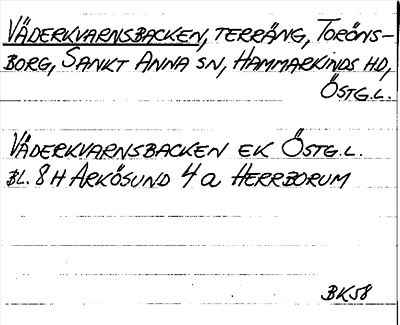 VÄDERKVARNSBACKEN, TERRÄNG, TORÖNS-
BORG, SANKT ANNA SN, HAMMARKINDS HD,
ÖSTG.L.
VÄDERKVARNSBACKEN EK ÖSTG.L.
BL. 8H ARKÖSUND 4a HERRBORUM
BK58